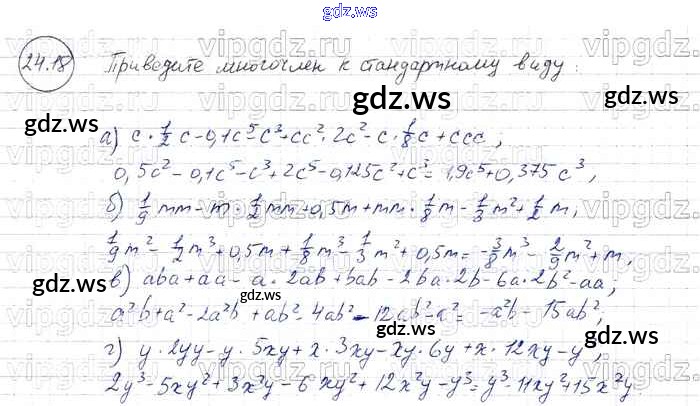 gdz.ws
24.18 Приведите многочлен к стандартному виду:
а) c·1/2c-0,1c⁵-c³+cc²·2c²-c·1/8c+ccc,
0,5c²-0,1c⁵-c³+2c⁵-0,125c²+c³=1,9c⁵+0,375c³,
б) 1/9mm-m·1/2mm+0,5m+mm·1/8m-1/3m²+1/2m,
1/9m²-1/2m³+0,5m+1/8m³-1/3m²+0,5m=-3/8m³-2/9m²+m,
в) aba+aa-a·2ab+bab-2ba·2b-6a·2b²-aa,
a²b+a²-2a²b+ab²-4ab²-12ab²-a²=-a²b-15ab²;
г) y·2yy-y·5xy+x·3xy-xy·6y+x·12xy-y³,
2y³-5xy²+3x²y-6xy²+12x²y-y³=y³-11xy²+15x²y.